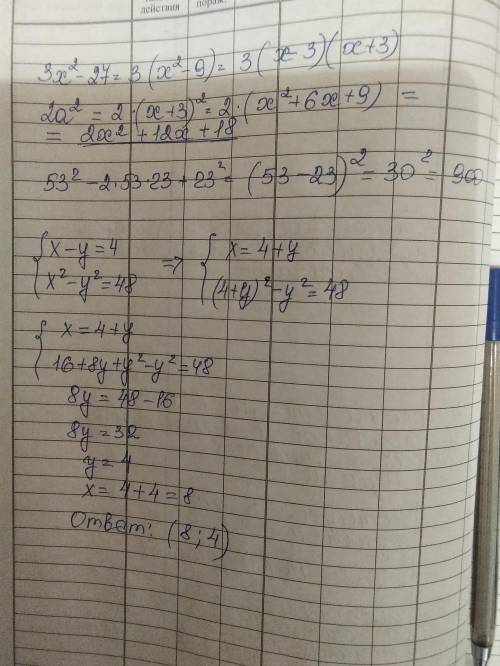 действия
пораж.
3x² - 27 = 3(x² - 9) = 3(x - 3)(x + 3)
2a² = 2·(x+3)² = 2·(x² + 6x + 9) =
= 2x² + 12x + 18
53² - 2·53·23 + 23² = (53 - 23)² = 30² = 900
{ x - y = 4 => { x = 4 + y
{ x² - y² = 48 { (4+y)² - y² = 48
{ x = 4 + y
{ 16 + 8y + y² - y² = 48
8y = 48 - 16
8y = 32
y = 4
x = 4 + 4 = 8
Ответ: (8; 4)